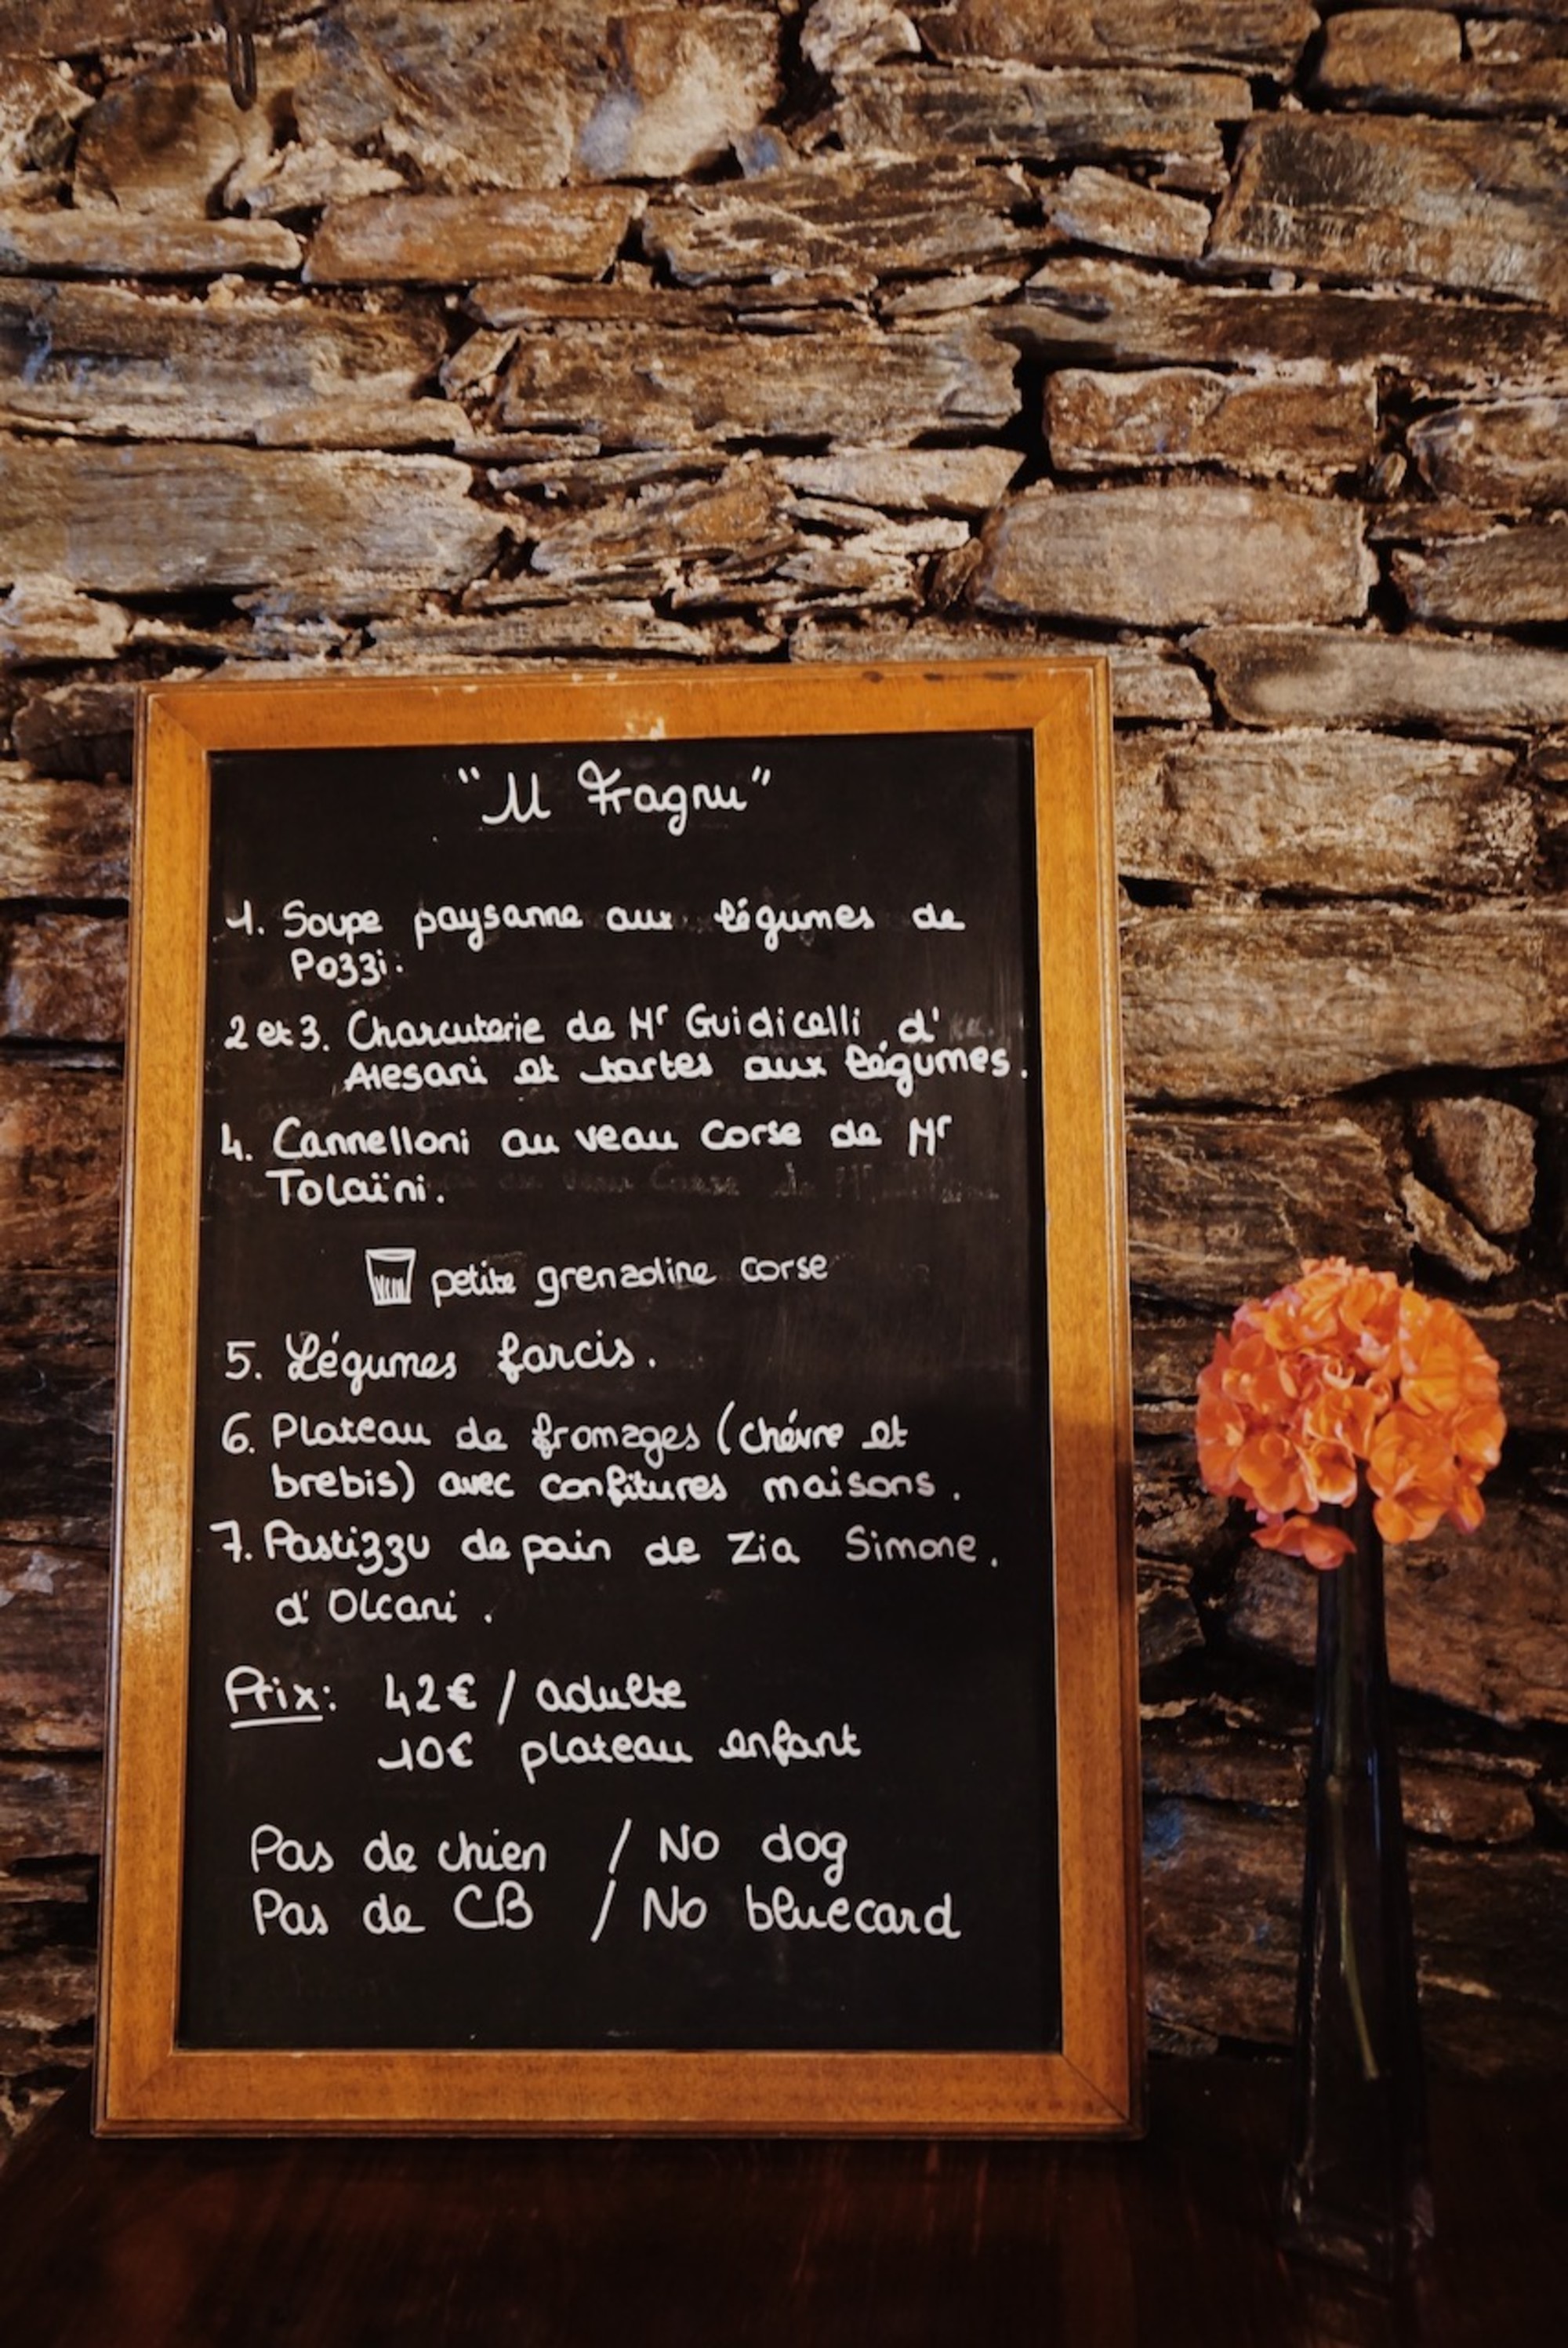 "U Fragnu"
1. Soupe paysanne aux légumes de
Pozzi.
2 et 3. Charcuterie de Mr Guidicelli d'
Alesani et tartes aux légumes.
4. Cannelloni au veau Corse de Mr
Tolaïni.
petite grenadine corse
5. Légumes farcis.
6. Plateau de fromages (chévre et
brebis) avec confitures maisons.
7. Pastizzu de pain de Zia Simone.
d'Olcani.
Prix: 42€ / adulte
10€ plateau enfant
Pas de chien / No dog
Pas de CB / No bluecard